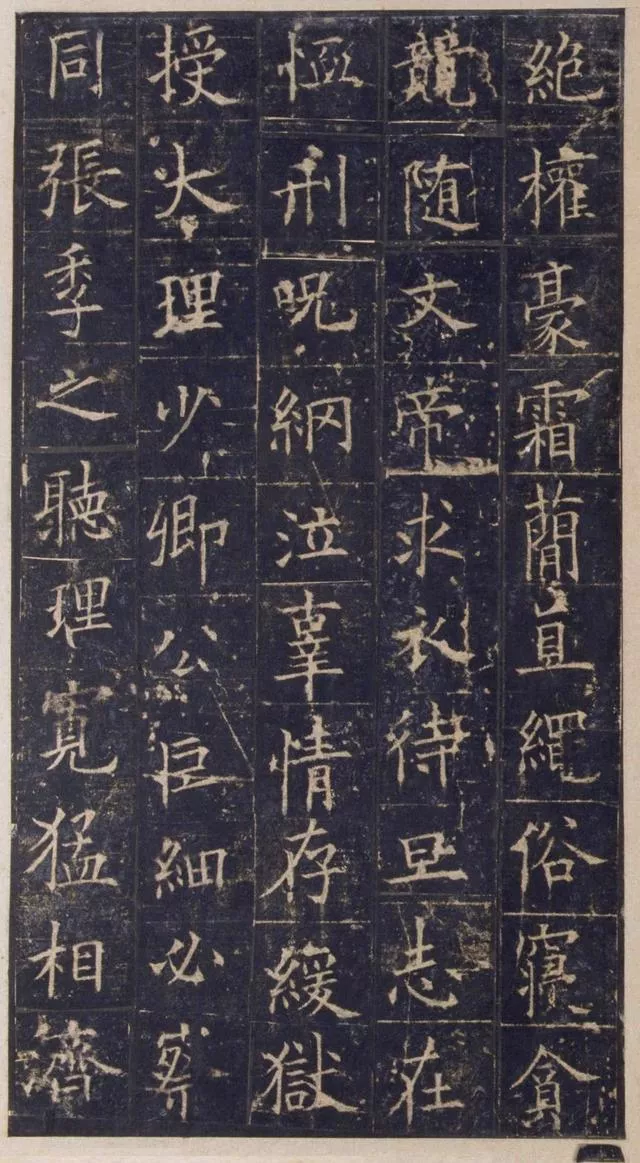 絶權豪霜蕑直繩俗寢貪
競随文帝求衣待旦志在
恤刑呪網泣辜情存緩獄
授大理少卿公巨細必察
同張季之聽理寬猛相濟